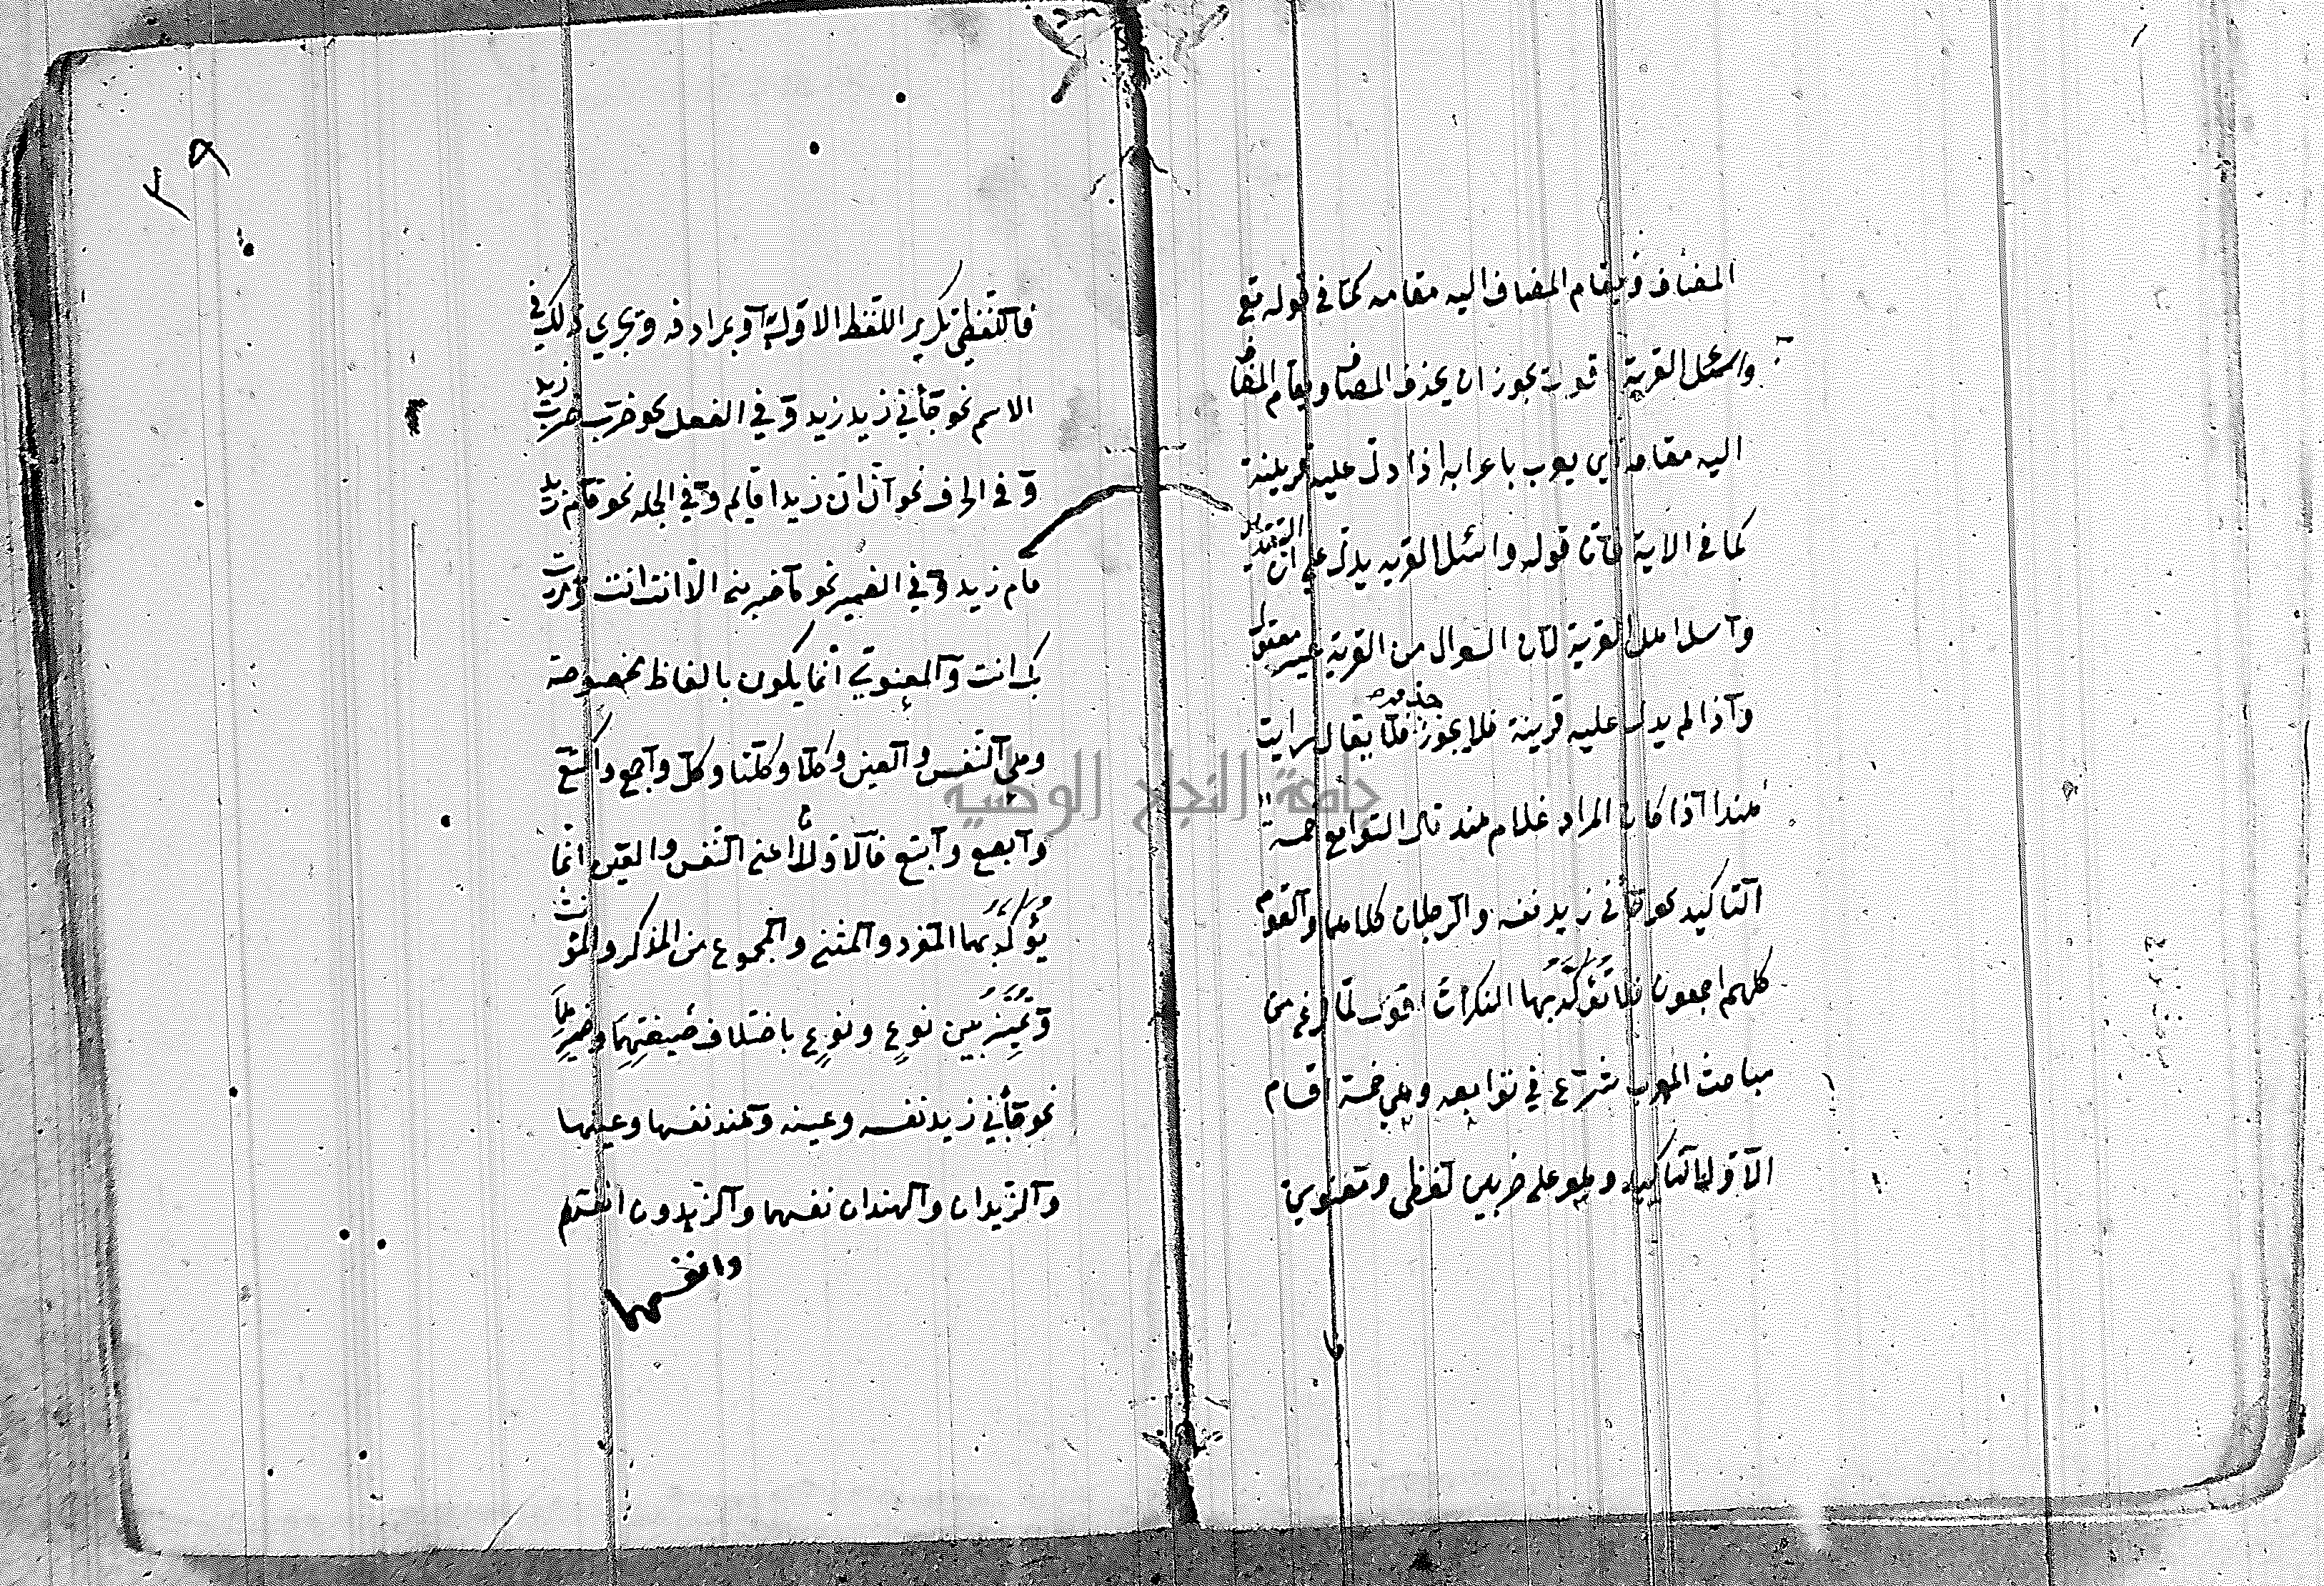 المضاف ويقام المضاف اليه مقامه كما في قوله تع
واسئل القرية اقول يجوز ان يحذف المضاف ويقام المضاف
اليه مقامه اي يعرب باعرابه اذا دل عليه قرينة
كما في الاية فان قوله واسئل القريه يدل على ان التقدير
واسئل اهل القرية لان السؤال من القرية غير معقول
واذا لم يدل عليه قرينة فلا يجوز حذفه فلا يقال رايت
هندا اذا كان المراد غلام هند قال التوابع خمسة
التاكيد نحو جأني زيد نفسه والرجلان كلاهما والقوم
كلهم اجمعون فلا تؤكد بها النكرات اقول لما فرغ من
مباحث المعرب شرع في توابعه وهي خمسة اقسام
الاول التاكيد وهو على ضربين لفظي ومعنوي
٢٩
فاللفظي تكرير اللفظ الاول او بمرادفه ويجري ذلك في
الاسم نحو جأني زيد زيد وفي الفعل نحو ضرب ضرب زيد
وفي الحرف نحو ان ان زيدا قايم وفي الجمله نحو قام زيد
قام زيد وفي الضمير نحو ما ضربني الا انت انت ومررت
بك انت والمعنوي انما يكون بالفاظ مخصوصة
وهي النفس والعين وكلا وكلتا وكل واجمع واكتع
وابصع وابتع فالاولان اعني النفس والعين انما
يؤكد بهما المفرد والمثنى والمجموع من المذكر والمؤنث
ويميز بين نوع ونوع باختلاف صيغتهما وضميرهما
نحو جأني زيد نفسه وعينه وهند نفسها وعينها
والزيدان والهندان نفسهما والزيدون انفسهم
وانفسهما
جامعة النجاح الوطنية